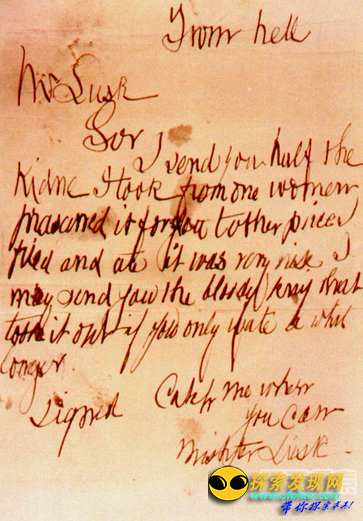 From hell
Mr Lusk
Sor
I send you half the
Kidne I took from one women
prasarved it for you tother piece I
fried and ate it was very nise I
may send you the bloody knif that
took it out if you only wate a whil
longer.
signed
Catch me when
you can
Mishter Lusk.
探索发现网
www.ufohw.com
带你探索未知!